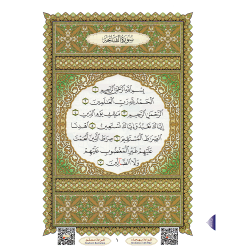 سورة الفاتحة
بسم الله الرحمن الرحيم ١
الحمد لله رب العلمين ٢
الرحمن الرحيم ٣ ملك يوم الدين ٤
إياك نعبد وإياك نستعين ٥ اهدنا
الصرط المستقيم ٦ صرط الذين أنعمت
عليهم غير المغضوب عليهم
ولا الضالين ٧
١